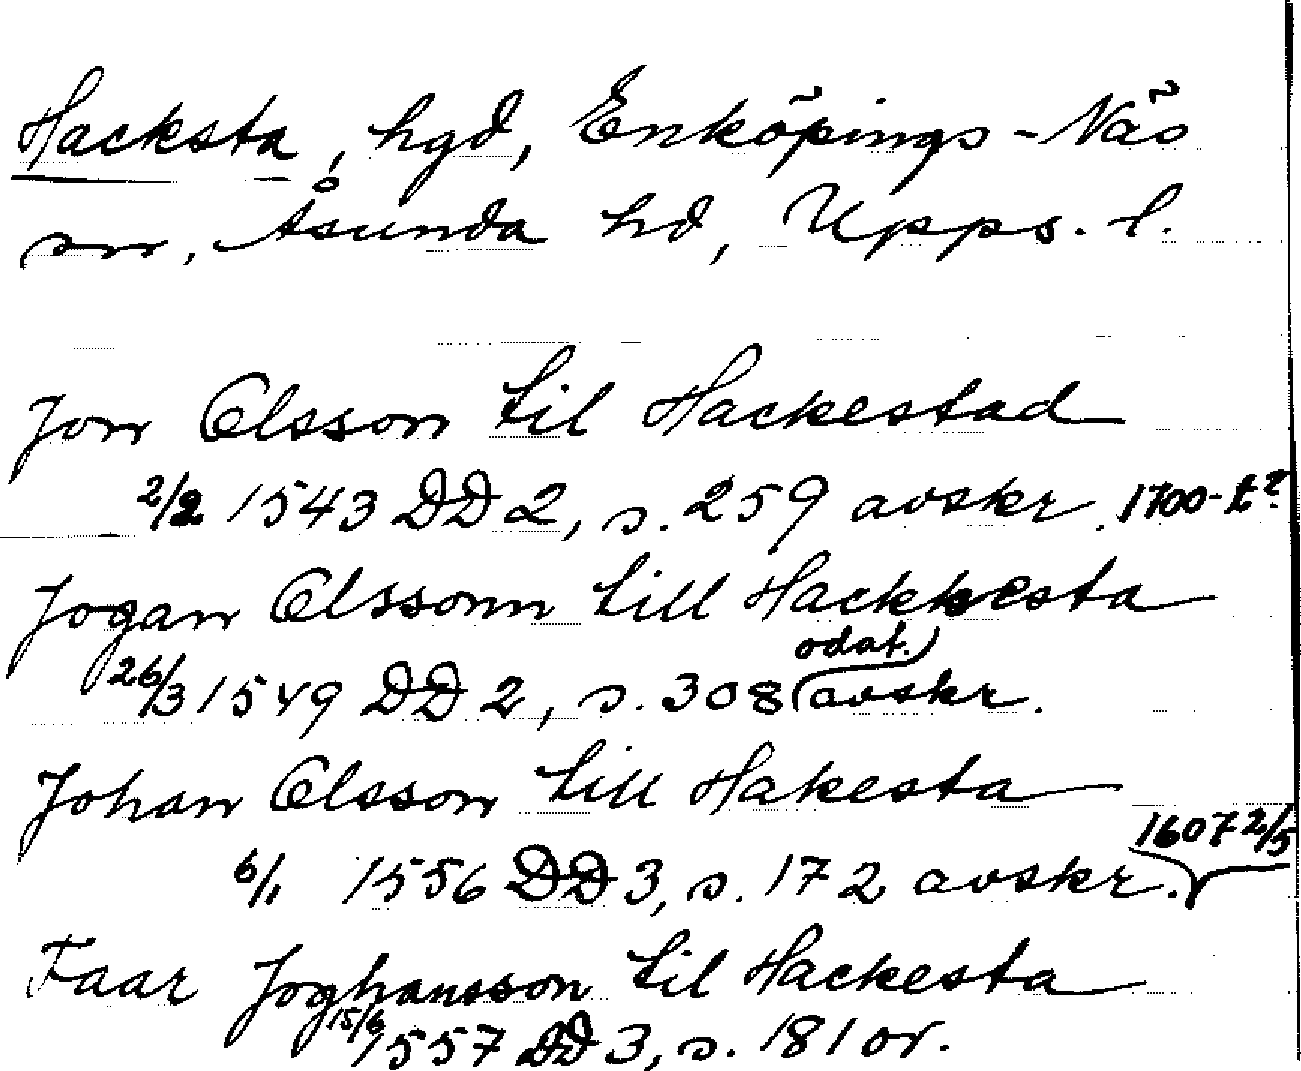 Hacksta, hgd, Enköpings-Näs
sn, Åsunda hd, Upps. l.
Jon Olsson til Hackestad
2/2 1543 DD 2, s. 259 avskr. 1700-t?
Jogan Olssonn till Hackkesta
26/3 1549 DD 2, s. 308 (odat.) avskr.
Johan Olsson till Hakesta
6/1 1556 DD 3, s. 172 avskr. 1607 2/5
Faar Joghansson til Hackesta
15/6 1557 DD 3, s. 181 or.